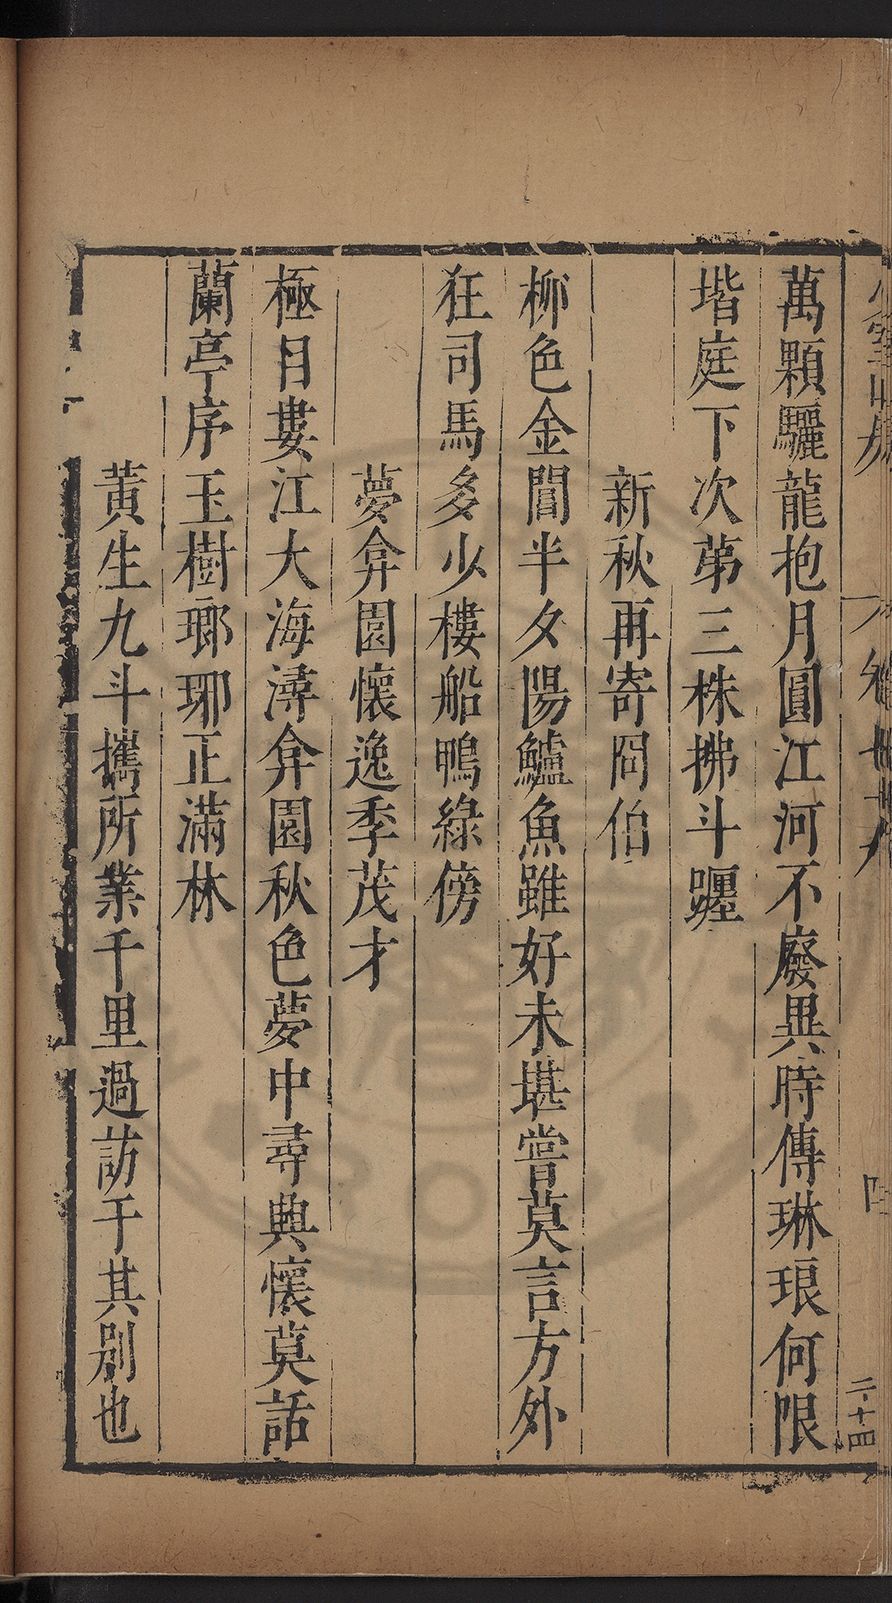 萬顆驪龍抱月圓江河不廢異時傳琳琅何限
堦庭下次苐三株拂斗躔
新秋再寄冏伯
柳色金閶半夕陽鱸魚雖好未堪嘗莫言方外
狂司馬多少樓船鴨綠傍
夢弇園懷逸季茂才
極目婁江大海潯弇園秋色夢中尋興懷莫話
蘭亭序玉樹瑯琊正滿林
黃生九斗攜所業千里過訪于其别也
二十四